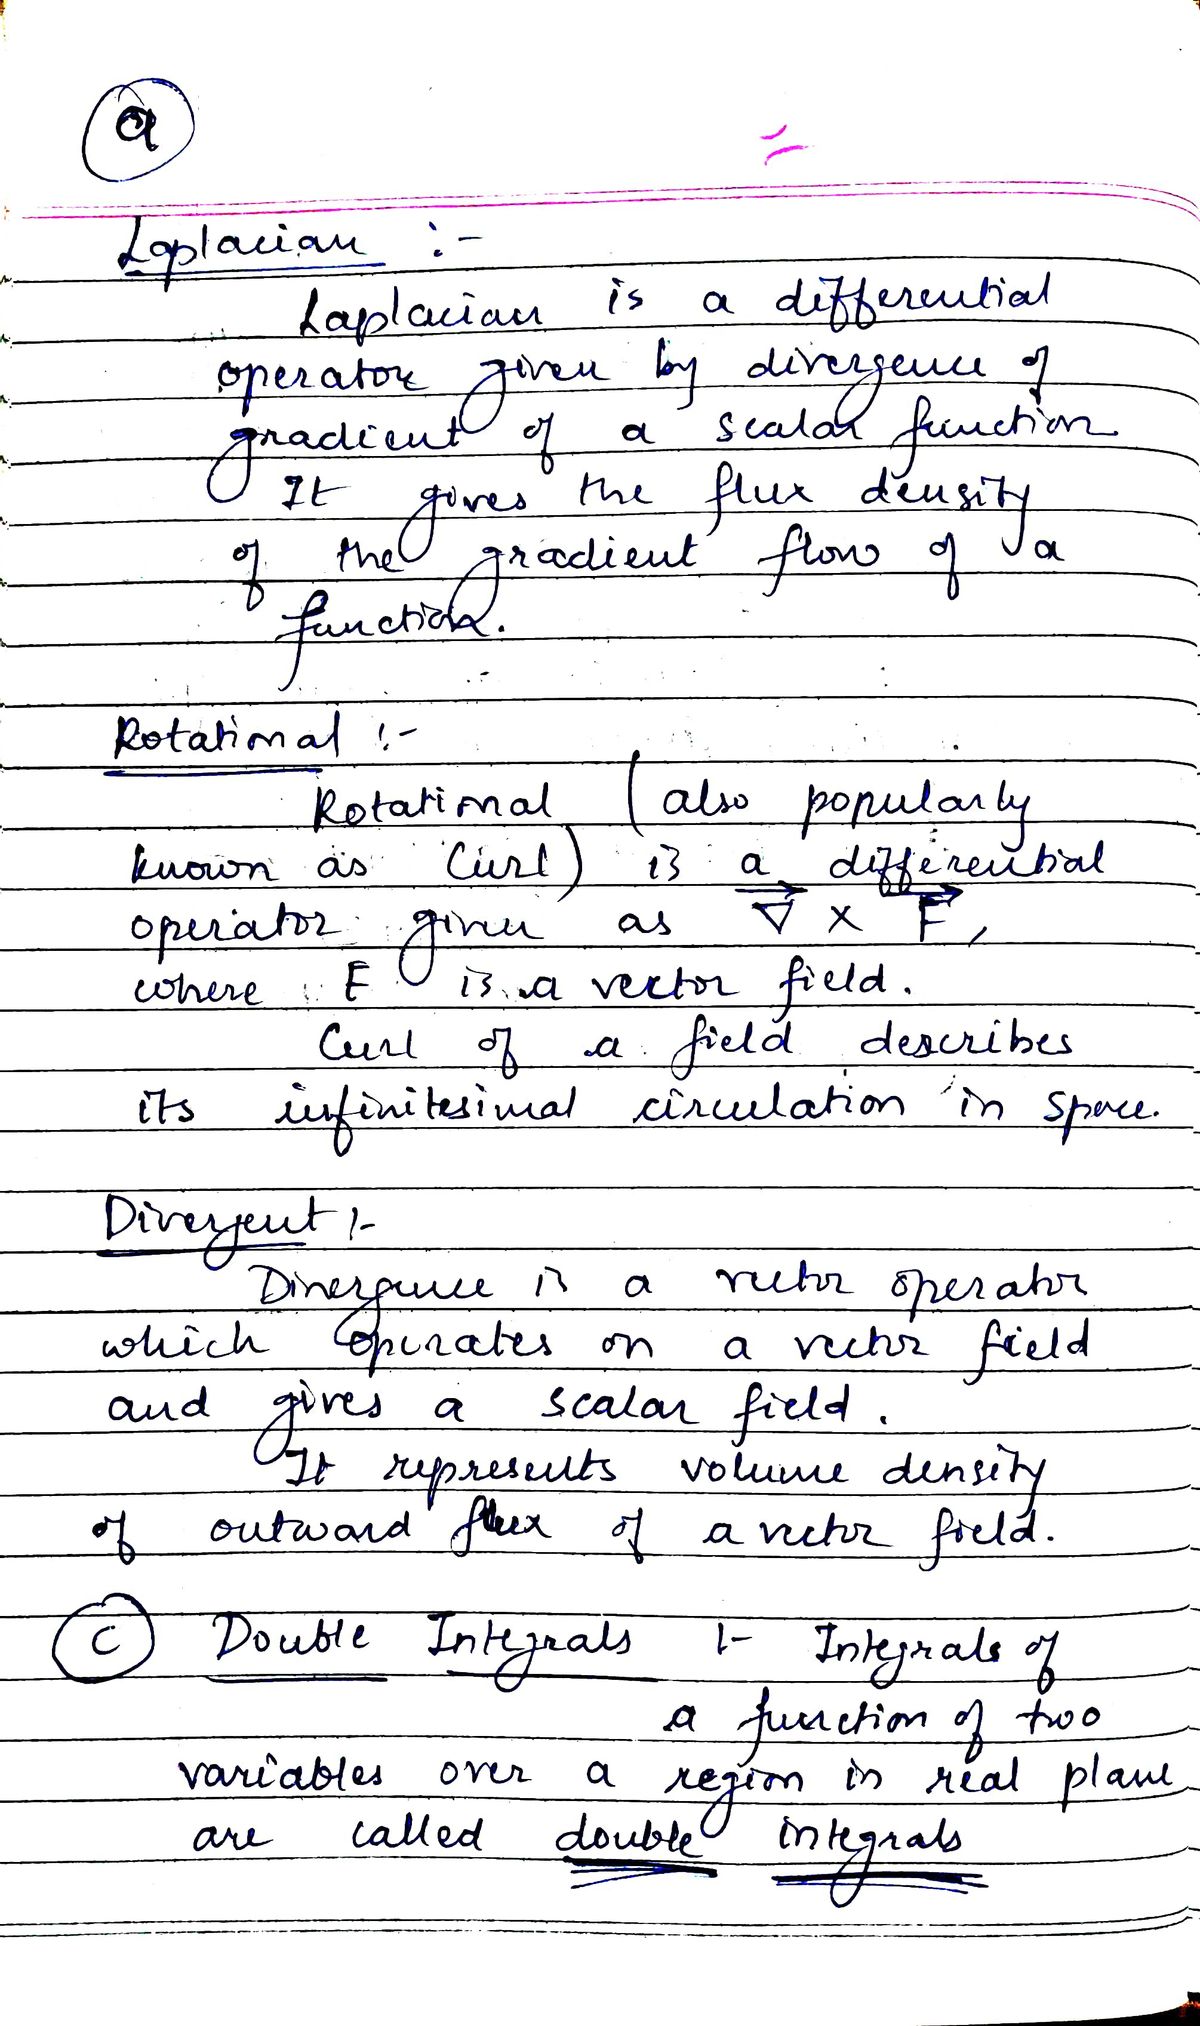 a
Laplacian :-
Laplacian is a differential
operator given by divergence of
gradient of a scalar function
It gives the flux density
of the gradient flow of a
function.
Rotational :-
Rotational (also popularly
known as Curl) is a differential
operator given as ∇⃗ × F⃗,
where F is a vector field.
Curl of a field describes
its infinitesimal circulation in space.
Divergent :-
Divergence is a vector operator
which operates on a vector field
and gives a scalar field.
It represents volume density
of outward flux of a vector field.
C Double Integrals :- Integrals of
a function of two
variables over a region in real plane
are called double integrals